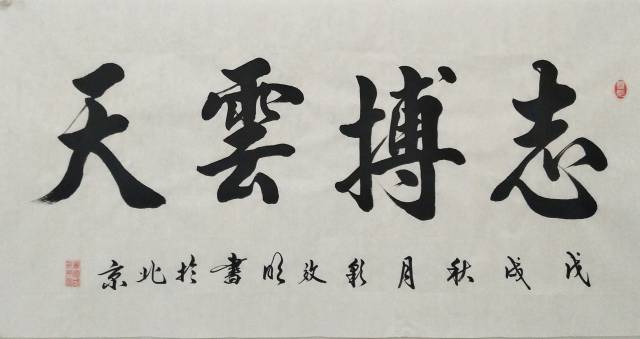 志搏雲天
戊戌秋月彩效收書於北京